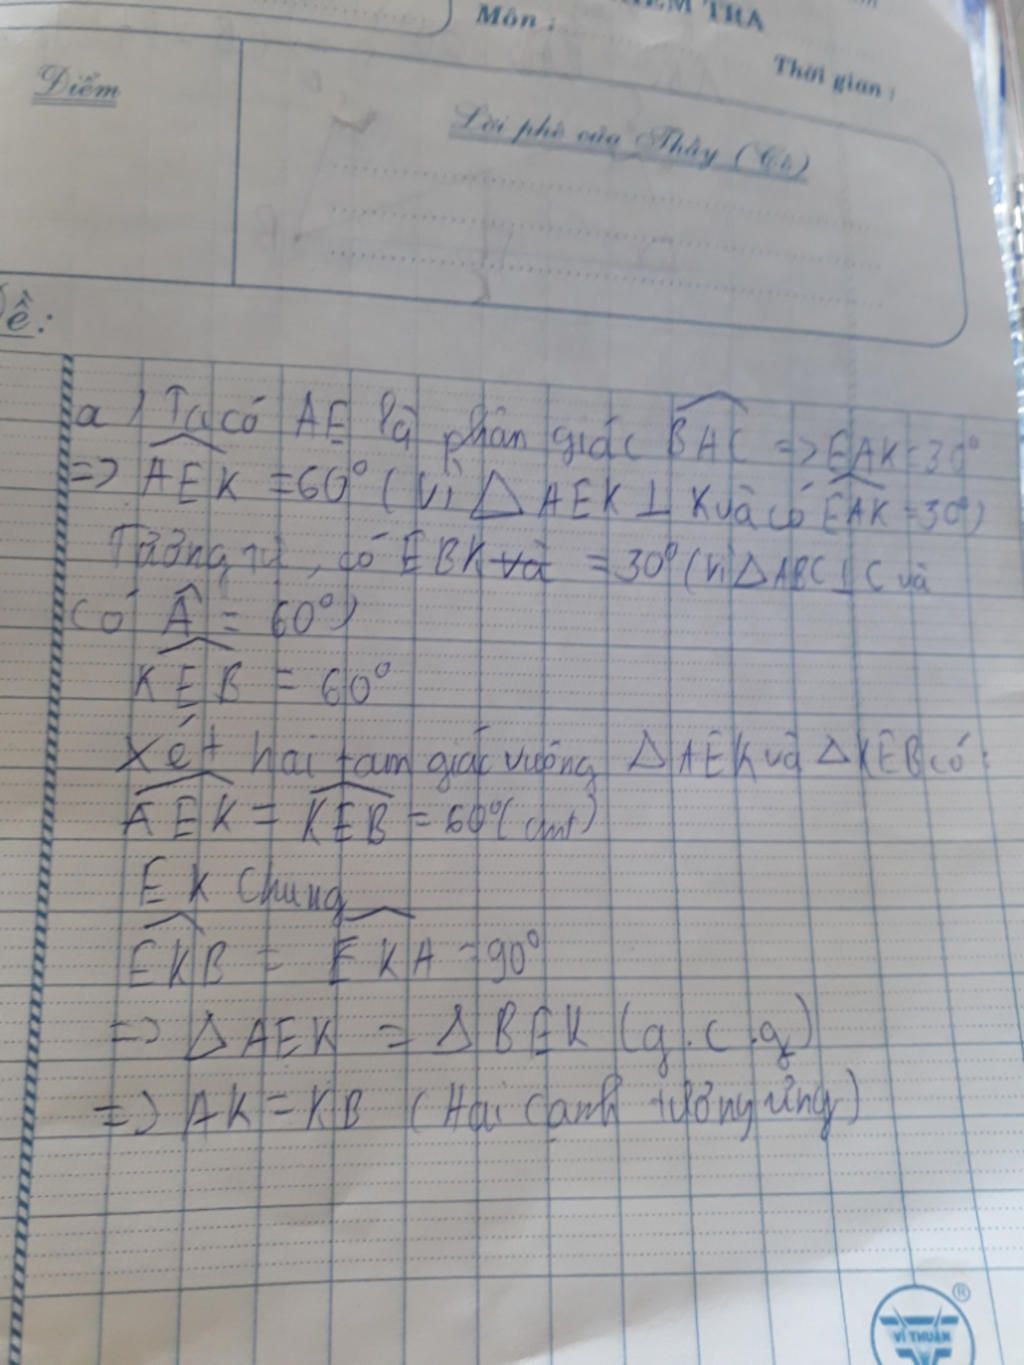 Môn :
KIỂM TRA
Thời gian :
Điểm
Lời phê của Thầy (Cô)
Đề:
a) Ta có AE là phân giác BAC => EAK = 30°
=> AEK = 60° ( Vì △ AEK ⊥ K và có EAK = 30°)
Tương tự, có EBK và = 30° (Vì △ ABC ⊥ C và
có Â = 60°)
KEB = 60°
Xét hai tam giác vuông △ AEK và △ KEB có:
AEK = KEB = 60° (cmt)
EK chung
EKB = EKA = 90°
=> △ AEK = △ BEK (g.c.g)
=> AK = KB (Hai cạnh tương ứng)
VĨ THUẬN
®